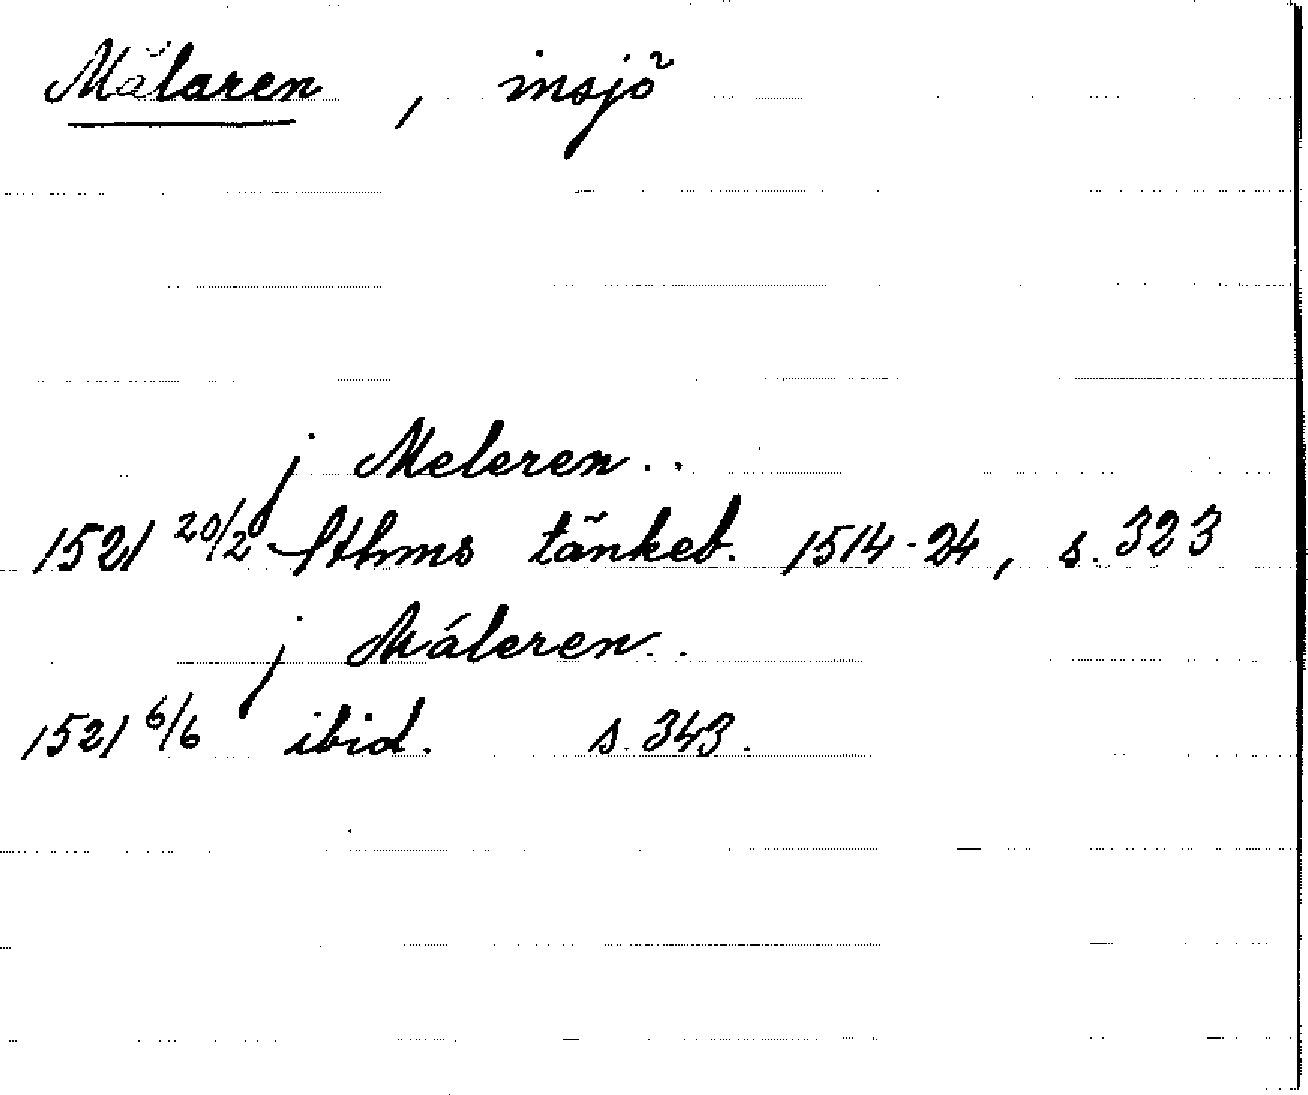 Mälaren , insjö
j Meleren..
1521 20/2 Sthms tänkeb. 1514-24, s. 323
j Máleren..
1521 6/6 ibid. s. 343.